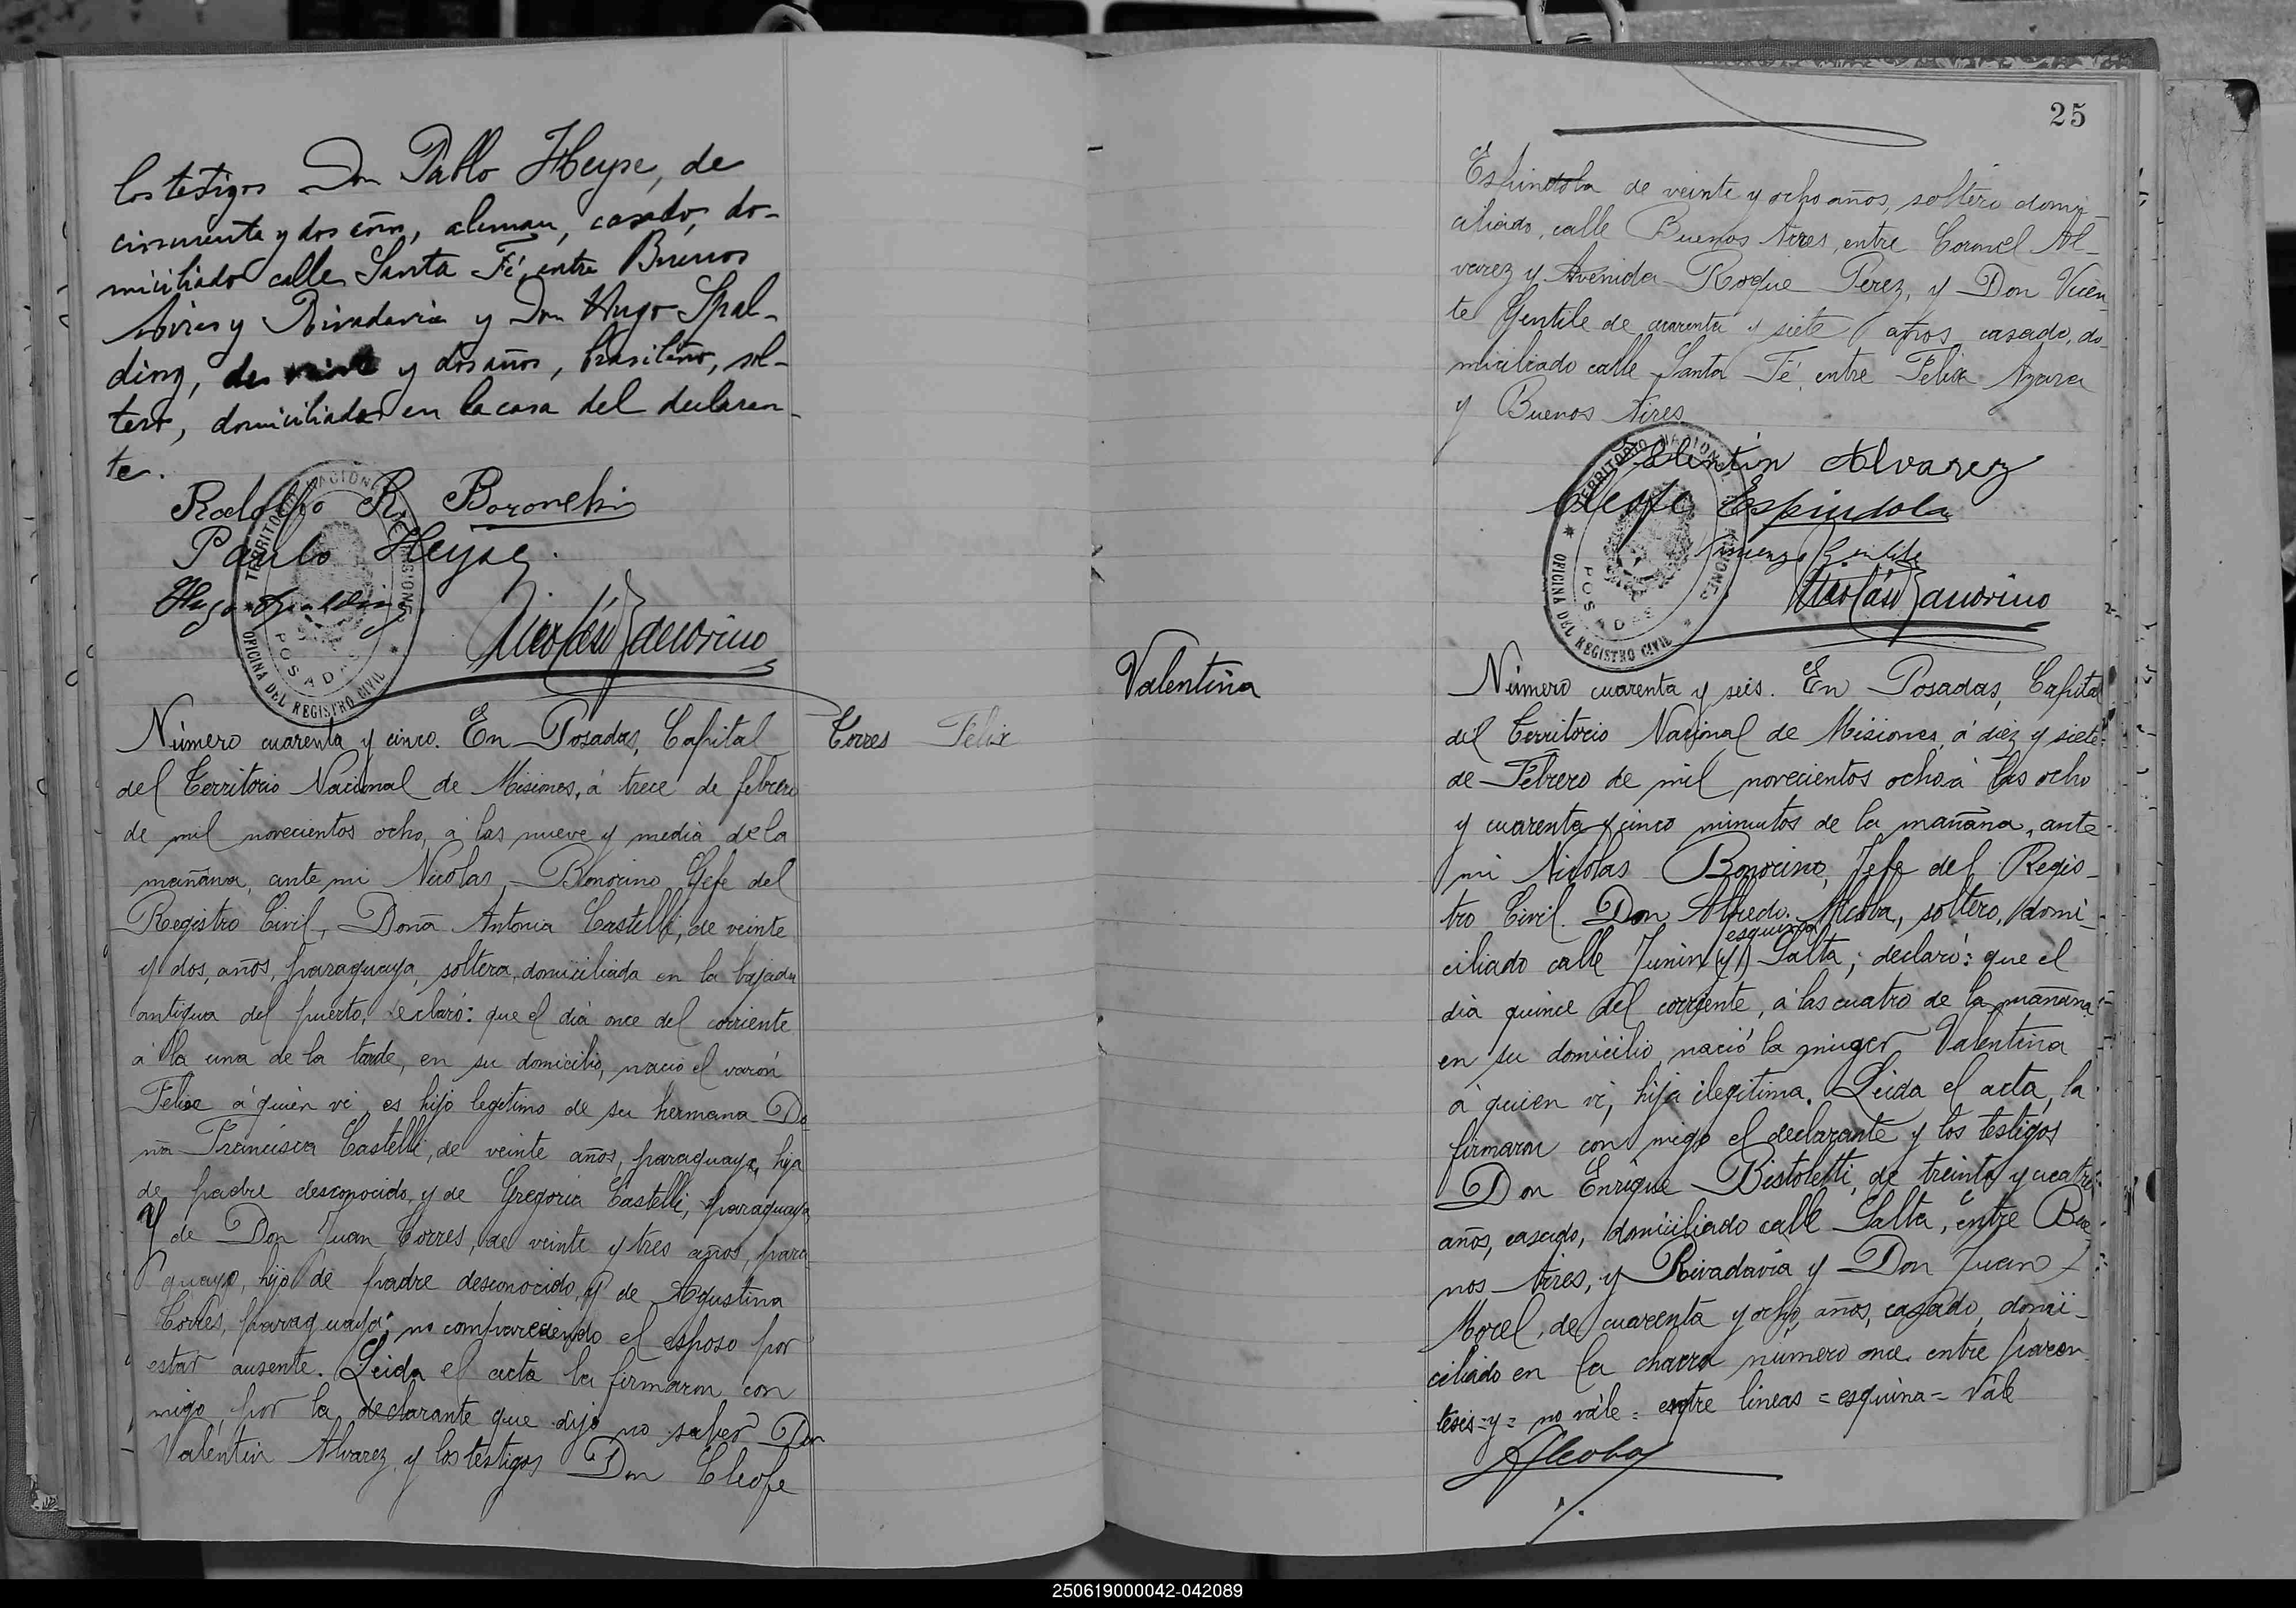 los testigos Don Pablo Heyse, de
cincuenta y dos años, aleman, casado, do-
miciliado calle Santa Fé, entre Buenos
Aires y Rivadavia y Don Hugo Spal-
ding, de y dos años, brasilero, sol-
tero, domiciliado en la casa del declaran-
te.
Rodolfo R. Boronchi
Paulo Heyse
Hugo Spalding
Nicolás Bonorino
TERRITORIO NACIONAL DE MISIONES
POSADAS
OFICINA DEL REGISTRO CIVIL
Torres Felix
Número cuarenta y cinco. En Posadas, Capital
del Territorio Nacional de Misiones, á trece de febrero
de mil novecientos ocho, á las nueve y media de la
mañana, ante mi Nicolas Bonorino Gefe del
Registro Civil, Doña Antonia Castelli, de veinte
y dos, años, paraguaya, soltera, domiciliada en la bajada
antigua del puerto, declaró: que el dia once del corriente
á la una de la tarde, en su domicilio, nació el varón
Felix á quien vi, es hijo legitimo de su hermana Do
ña Francisca Castelli, de veinte años, paraguaya, hija
de padre desconocido, y de Gregoria Castelli, paraguaya
y de Don Juan Torres, de veinte y tres años, para
guayo, hijo de padre desconocido, y de Agustina
Torres, paraguaya; no compareciendo el esposo por
estar ausente. Leida el acta la firmaron con
migo, por la declarante que dijo no saber Don
Valentin Alvarez, y los testigos Don Cleofe
25
Espindola de veinte y ocho años, soltero domi-
ciliado, calle Buenos Aires, entre Coronel Al-
varez y Avenida Roque Perez, y Don Vicen-
te Gentile de cuarenta y siete años, casado, do-
miciliado calle Santa Fé, entre Felix Azara
y Buenos Aires
Valentin Alvarez
Cleofe Espindola
Vincenzo Gentile
Nicolás Bonorino
TERRITORIO NACIONAL DE MISIONES
POSADAS
OFICINA DEL REGISTRO CIVIL
Valentina
Número cuarenta y seis. En Posadas, Capital
del Territorio Nacional de Misiones, á diez y siete
de Febrero de mil novecientos ocho á las ocho
y cuarenta y cinco minutos de la mañana, ante
mi Nicolas Bonorino, Jefe del Regis-
tro Civil. Don Alfredo Alcoba, soltero, domi-
esquina
ciliado calle Junin (y) Salta; declaró: que el
dia quince del corriente, á las cuatro de la mañana
en su domicilio nació la muger Valentina
á quien vi, hija ilegitima. Leida el acta, la
firmaron con migo el declarante y los testigos
Don Enrique Bistoletti, de treinta y cuatro
años, casado, domiciliado calle Salta, entre Bue-
nos Aires, y Rivadavia y Don Juan
Morel, de cuarenta y ocho, años, casado, domi-
ciliado en la chacra número once. entre paren
tesis = y = no vale = entre lineas = esquina = Vale
AAlcoba
250619000042-042089